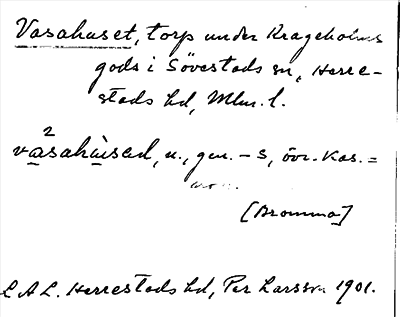 Vasahuset, torp under Krageholms
gods i Sövestads sn, Herre-
stads hd, Mlm. l.
va²sahùsed, n., gen. -s, övr. kas. =
nom.
[Bromma]
L A L. Herrestads hd, Per Larsson 1901.